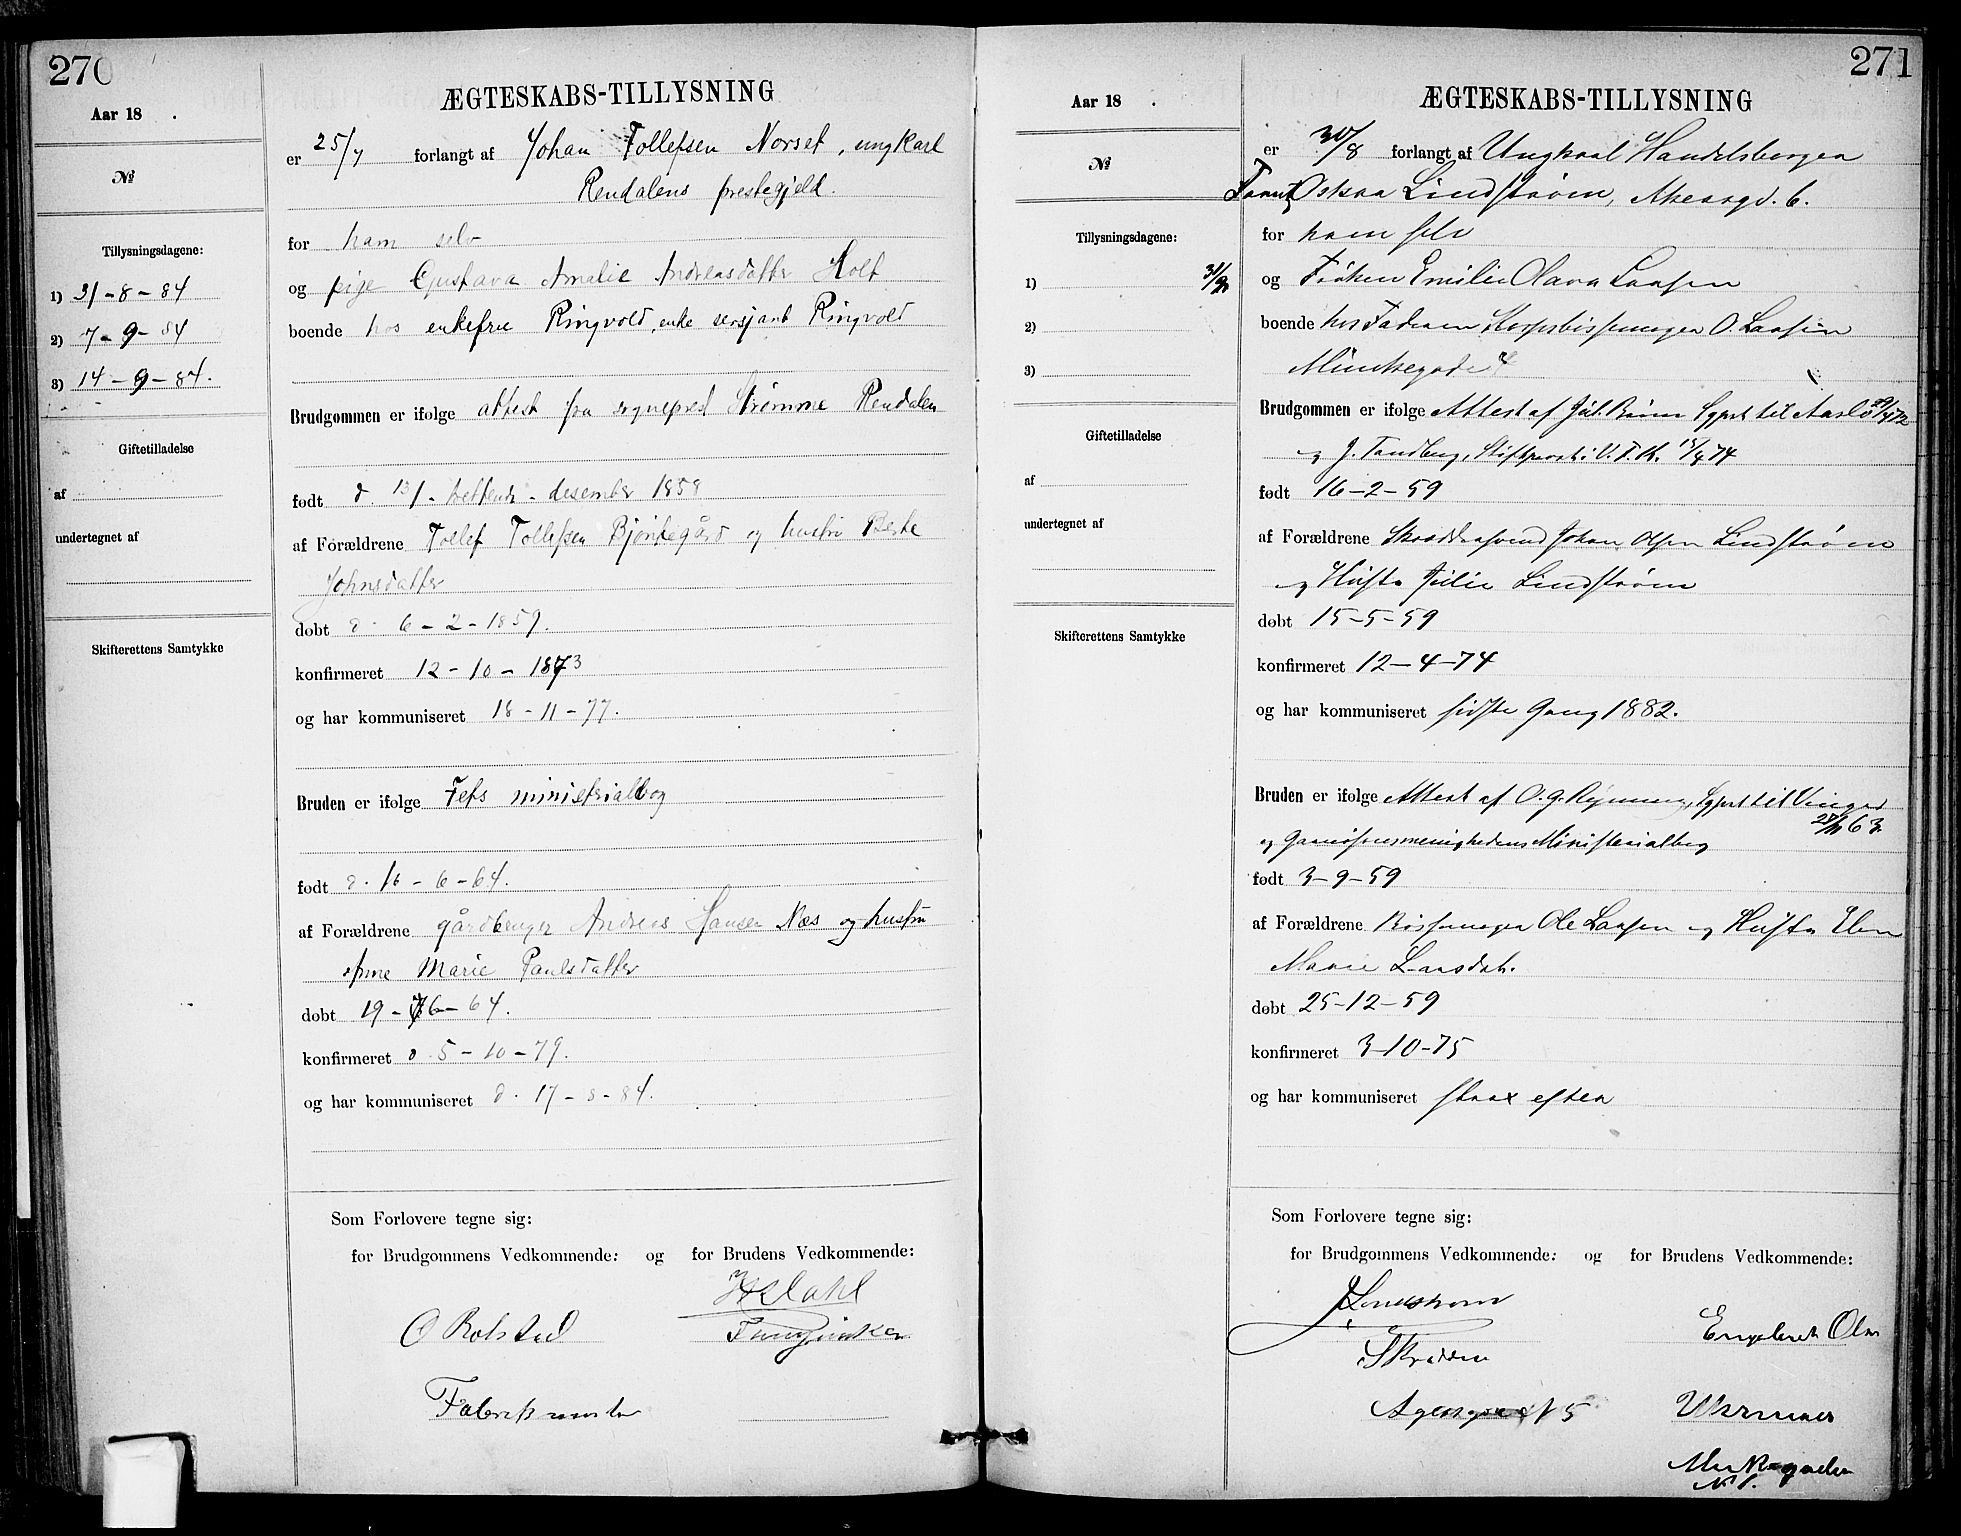 270
Aar 18 .
№
Tillysningsdagene:
1) 31-8-84
2) 7-9-84
3) 14-9-84.
Giftetilladelse
af
undertegnet af
Skifterettens Samtykke
ÆGTESKABS-TILLYSNING
er 25/7 forlangt af Johan Tollefsen Norset, ungkarl
Rendalens prestegjeld.
for ham selv
og pige Gustava Amalie Andreasdatter Holt
boende hos enkefru Ringvold, enke sersjant Ringvold
Brudgommen er ifølge attest fra sogneprest Strømme Rendalen
født d. 13/- trettende - desember 1858
af Forældrene Tollef Tollefsen Bjørkegård og hustru Berte
Johnsdatter
døbt d. 6-2-1859.
konfirmeret 12-10-1873
og har kommuniseret 18-11-77.
Bruden er ifølge Fets ministrialbog
født d. 16-6-64.
af Forældrene gårdbruger Andreas Hansen Næs og hustru
Marie Paulsdatter
døbt 19-6-64.
konfirmeret d. 5-10-79.
og har kommuniseret d. 17-8-84.
Som Forlovere tegne sig:
for Brudgommens Vedkommende: og for Brudens Vedkommende:
O Rolstad
Dahl
271
Aar 18 .
№
Tillysningsdagene:
1) 31/8
2)
3)
Giftetilladelse
af
undertegnet af
Skifterettens Samtykke
ÆGTESKABS-TILLYSNING
er 30/8 forlangt af Ungkarl Handelsborger
Frantz Oskar Lindstrøm, Akersgd. 6.
for ham selv
og Frøken Emilie Olava Larsen
boende hos Faderen Korpsbøssemager O. Larsen
Munkegade 4
Brudgommen er ifølge Attest af Jul. Sgprst til Aaslo
og J. Tandberg, Stiftsprovst i V. F. K. 15/4 74
født 16-2-59
af Forældrene Skræddersvend Johan Olsen Lindstrøm
og Hustru Julie Lindstrøm
døbt 15-5-59
konfirmeret 12-4-74
og har kommuniseret sidste Gang 1882.
Bruden er ifølge Attest af O. G. Rynning, Sgprst til Vinger
63.
og Garnisonsmenighedens Ministerialbog
født 3-9-59
af Forældrene Bøssemager Ole Larsen og Hustru Elen
Marie Larsdat.
døbt 25-12-59
konfirmeret 3-10-75
og har kommuniseret strax efter
Som Forlovere tegne sig:
for Brudgommens Vedkommende: og for Brudens Vedkommende:
J Lindstrøm
Skrædder
N 5
Engebret Olsen
Urmager
N 1.